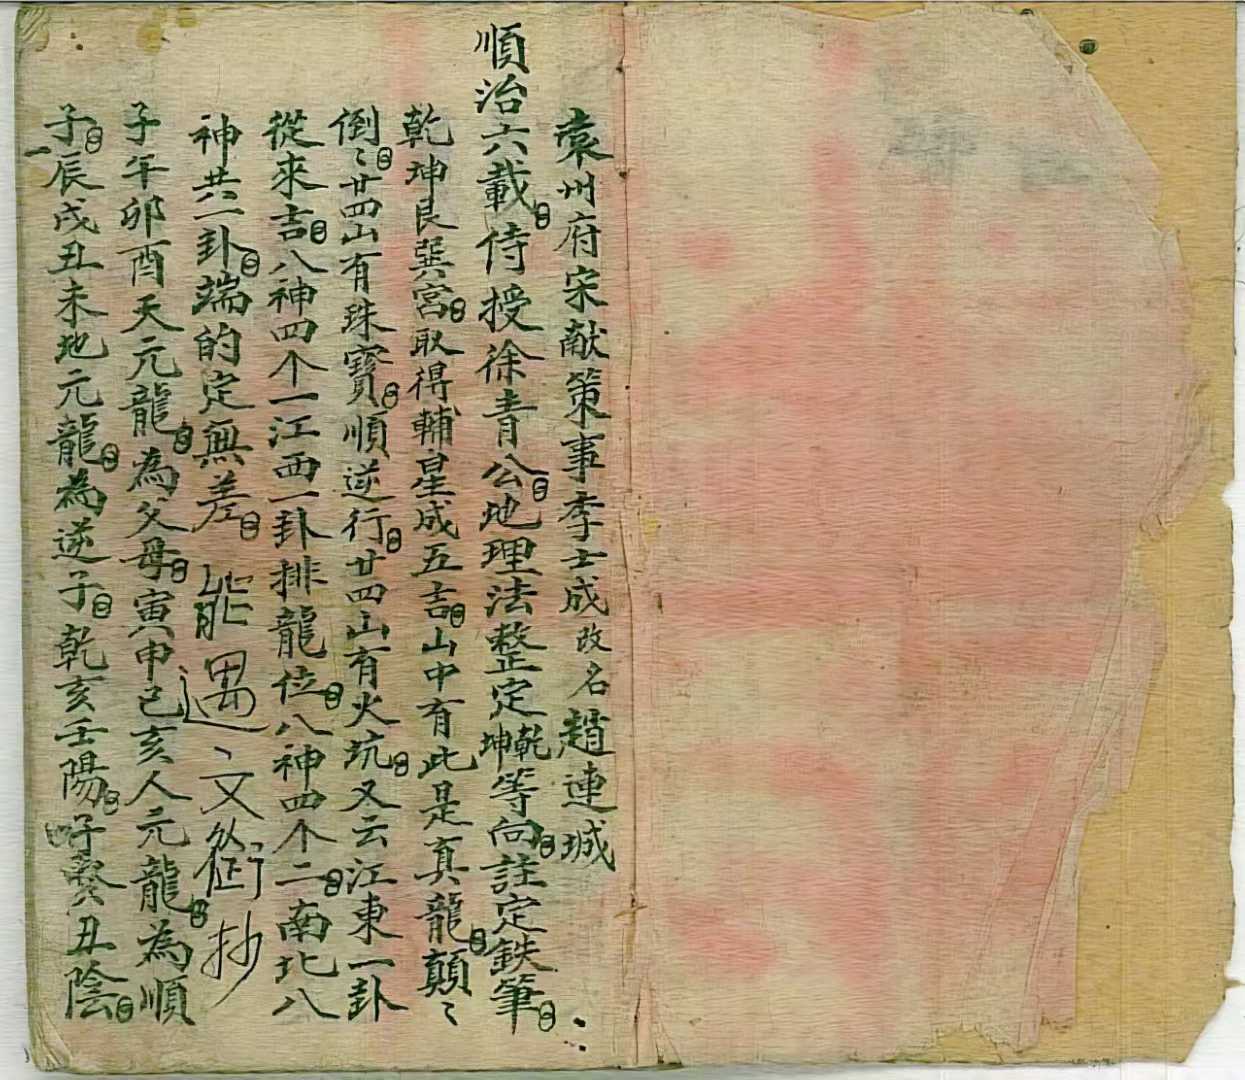 袁州府宋献策事李士成改名趙連城
順治六載侍授徐青公地理法整定乾坤等向註定鉄筆
乾坤艮巽宮取得輔星成五吉山中有此是真龍顛〻
倒〻廿四山有珠寶順逆行廿四山有火坑又云江東一卦
從來吉八神四个一江西一卦排龍位八神四个二南北八
神共一卦端的定無差能遇文衡抄
子午卯酉天元龍為父母寅申巳亥人元龍為順
子辰戌丑未地元龍為逆子乾亥壬陽子癸丑陰